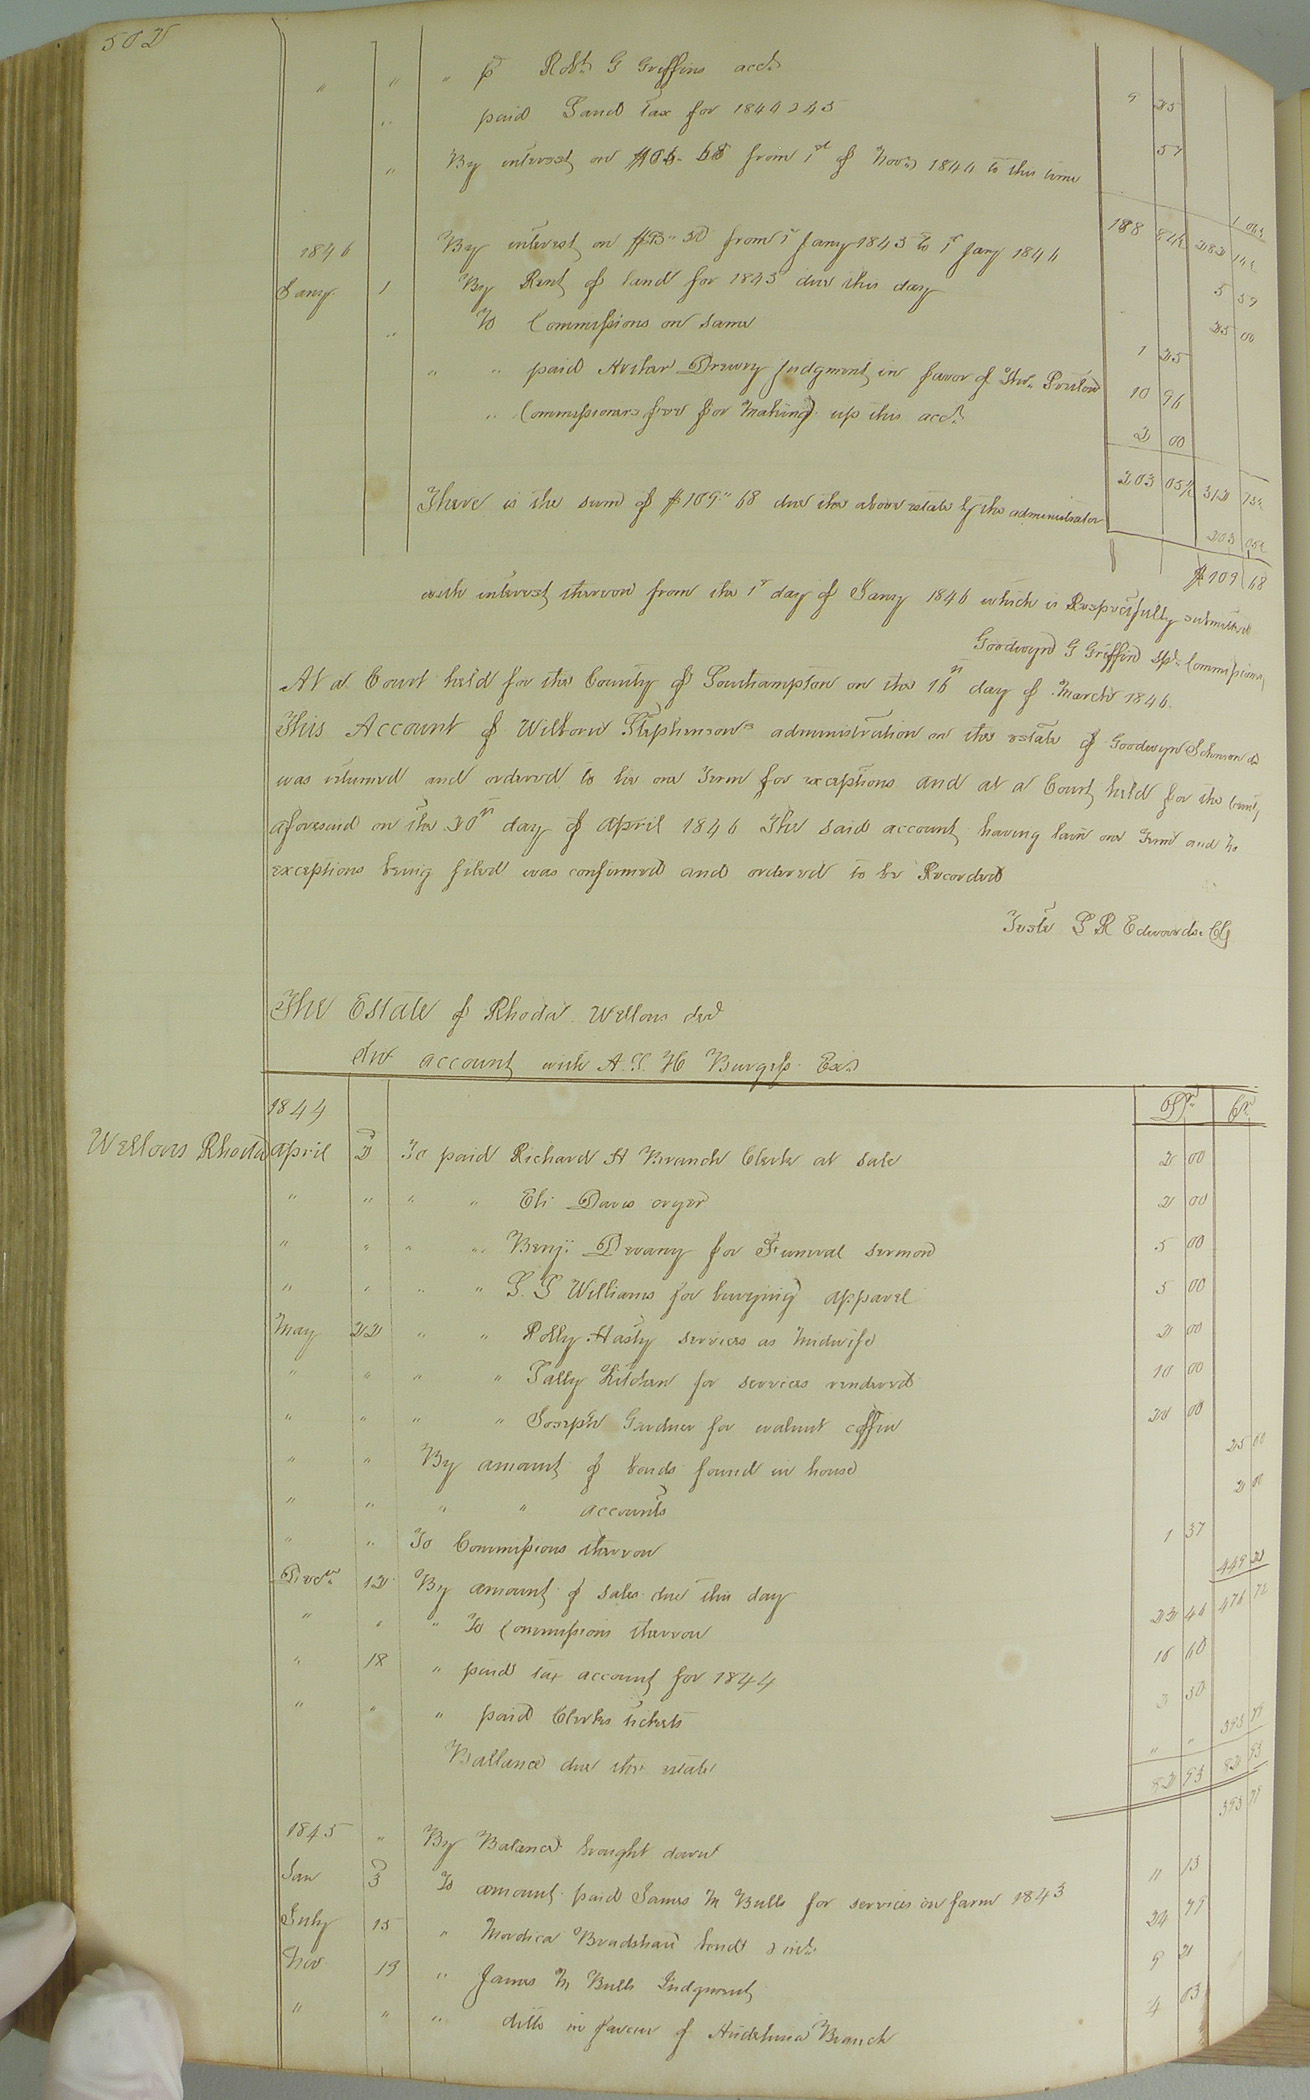 502
" " " p Robt. G Griffins acct. 9 25
" paid Land Tax for 1844 & 45 57
" By interest on from 1st of Novr 1844 to this time 1
188 84½ 282 14½
1846 By interest on from 1st Jany 1845 to 1st Jany 1846 5 59
Jany 1 By Rent of land for 1845 due this day 25 00
" To Commissions on same 1 25
" " paid Drewry Judgment in favor of Thos. 10 96
" Commissioners fee for making up this acct. 2 00
203 05½ 312 73½
There is the sum of $109" 68 due the above estate by the administrator 203 05½
$109 68
with interest thereon from the 1st day of Jany 1846 which is Respectfully submitted
Goodwyn G Griffin Spl. Commissioner
At a Court held for the County of Southampton on the 16th day of March 1846.
This Account of Stephenson's administration on the estate of Goodwyn Johnson dd
was returned and ordered to lie one Term for exceptions and at a Court held for the County
aforesaid on the 20th day of April 1846 The said account having lain one Term and no
exceptions being filed was confirmed and ordered to be Recorded
Teste L R Edwards Clk
The Estate of Rhoda Wellons decd
In account with A. S. H Burgess Exr
1844 Dr. Cr.
Wellons Rhoda April 2 To paid Richard H Branch Clerk at sale 2 00
" " " " Eli Davis cryer 2 00
" " " " Benj: Devany for Funeral sermon 5 00
" " " " Williams for burying apparel 5 00
May 22 " " Polly Hasty services as Midwife 2 00
" " " " Kitchen for services rendered 10 00
" " " " Joseph Gardner for walnut coffin 20 00
" " By amount of bonds found in house 25 00
" " " " accounts 2 00
" " To Commissions thereon 1 37
Decr. 12 By amount of sales due this day 449 72
" " " To Commissions thereon 22 46 476 72
" 18 " paid tax account for 1844 10 60
" " " paid Clerks tickets 2 50
Ballance due the estate " " 393 79
82 93 82 93
1845 " By Balance brought down 393 79
Jan 3 To amount paid James M Bulls for services on farm 1843 11 13
July 15 " Mordica Bradshaw bond & int. 24 79
Nov 13 " James M Bulls Judgment 9 21
" " " ditto in favour of Branch 4 03